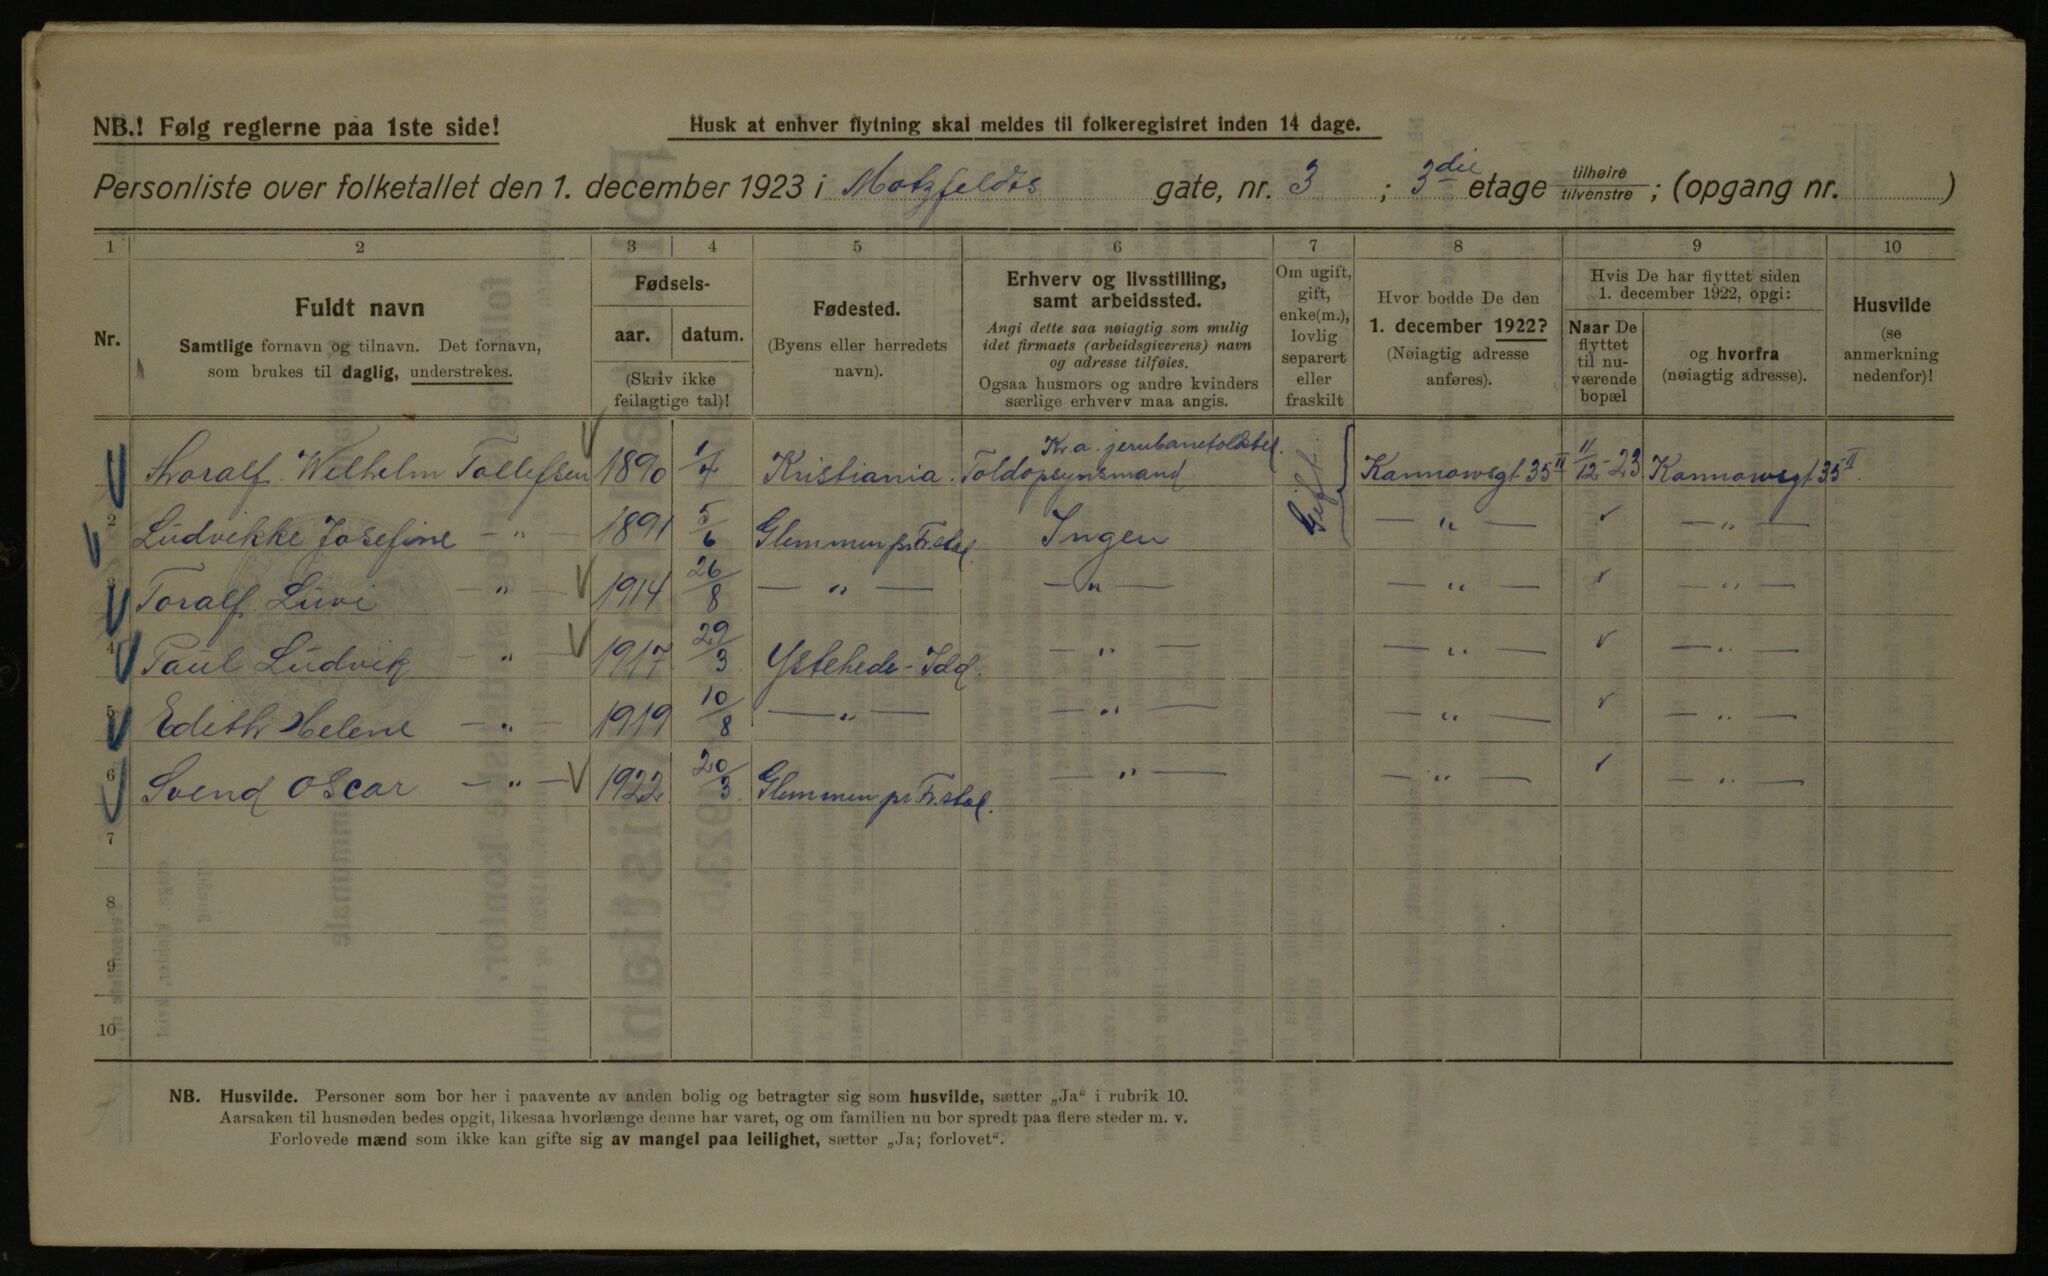 NB.! Følg reglerne paa 1ste side!
Husk at enhver flytning skal meldes til folkeregistret inden 14 dage.
Personliste over folketallet den 1. december 1923 i Motzfeldts gate, nr. 3 ; 3die etage tilhøire tilvenstre ; (opgang nr. )
1 2 3 4 5 6 7 8 9 10
Nr.
Fuldt navn
Samtlige fornavn og tilnavn. Det fornavn,
som brukes til daglig, understrekes.
Fødsels-
aar. datum.
(Skriv ikke
feilagtige tal)!
Fødested.
(Byens eller herredets
navn).
Erhverv og livsstilling,
samt arbeidssted.
Angi dette saa nøiagtig som mulig
idet firmaets (arbeidsgiverens) navn
og adresse tilføies.
Ogsaa husmors og andre kvinders
særlige erhverv maa angis.
Om ugift,
gift,
enke(m.),
lovlig
separert
eller
fraskilt
Hvor bodde De den
1. december 1922?
(Nøiagtig adresse
anføres).
Hvis De har flyttet siden
1. december 1922, opgi:
Naar De
flyttet
til nu-
værende
bopæl
og hvorfra
(nøiagtig adresse).
Husvilde
(se
anmerkning
nedenfor)!
Kr.a. jernbanetoldsted.
Thoralf Wilhelm Tollefsen 1890 1/4 Kristiania. Toldopsynsmand Gift Kannowsgt 35 II 11/12-23 Kannowsgt 35 II.
2 Ludvikke Josefine — „ — 1891 5/6 Glemmen pr. Fr.stad. Ingen — „ — — „ —
3 Toralf Luvi — „ — 1914 26/8 — „ — — „ — — „ — — „ —
4 Paul Ludvik — „ — 1917 29/3 Ystehede - Idd. — „ — — „ — — „ —
5 Edith Helene — „ — 1919 10/8 — „ — — „ — — „ — — „ —
6 Svend Oscar — „ — 1922 20/3 Glemmen pr. Fr.stad. — „ — — „ — — „ —
7
8
9
10
NB. Husvilde. Personer som bor her i paavente av anden bolig og betragter sig som husvilde, sætter „Ja“ i rubrik 10.
Aarsaken til husnøden bedes opgit, likesaa hvorlænge denne har varet, og om familien nu bor spredt paa flere steder m. v.
Forlovede mænd som ikke kan gifte sig av mangel paa leilighet, sætter „Ja; forlovet“.